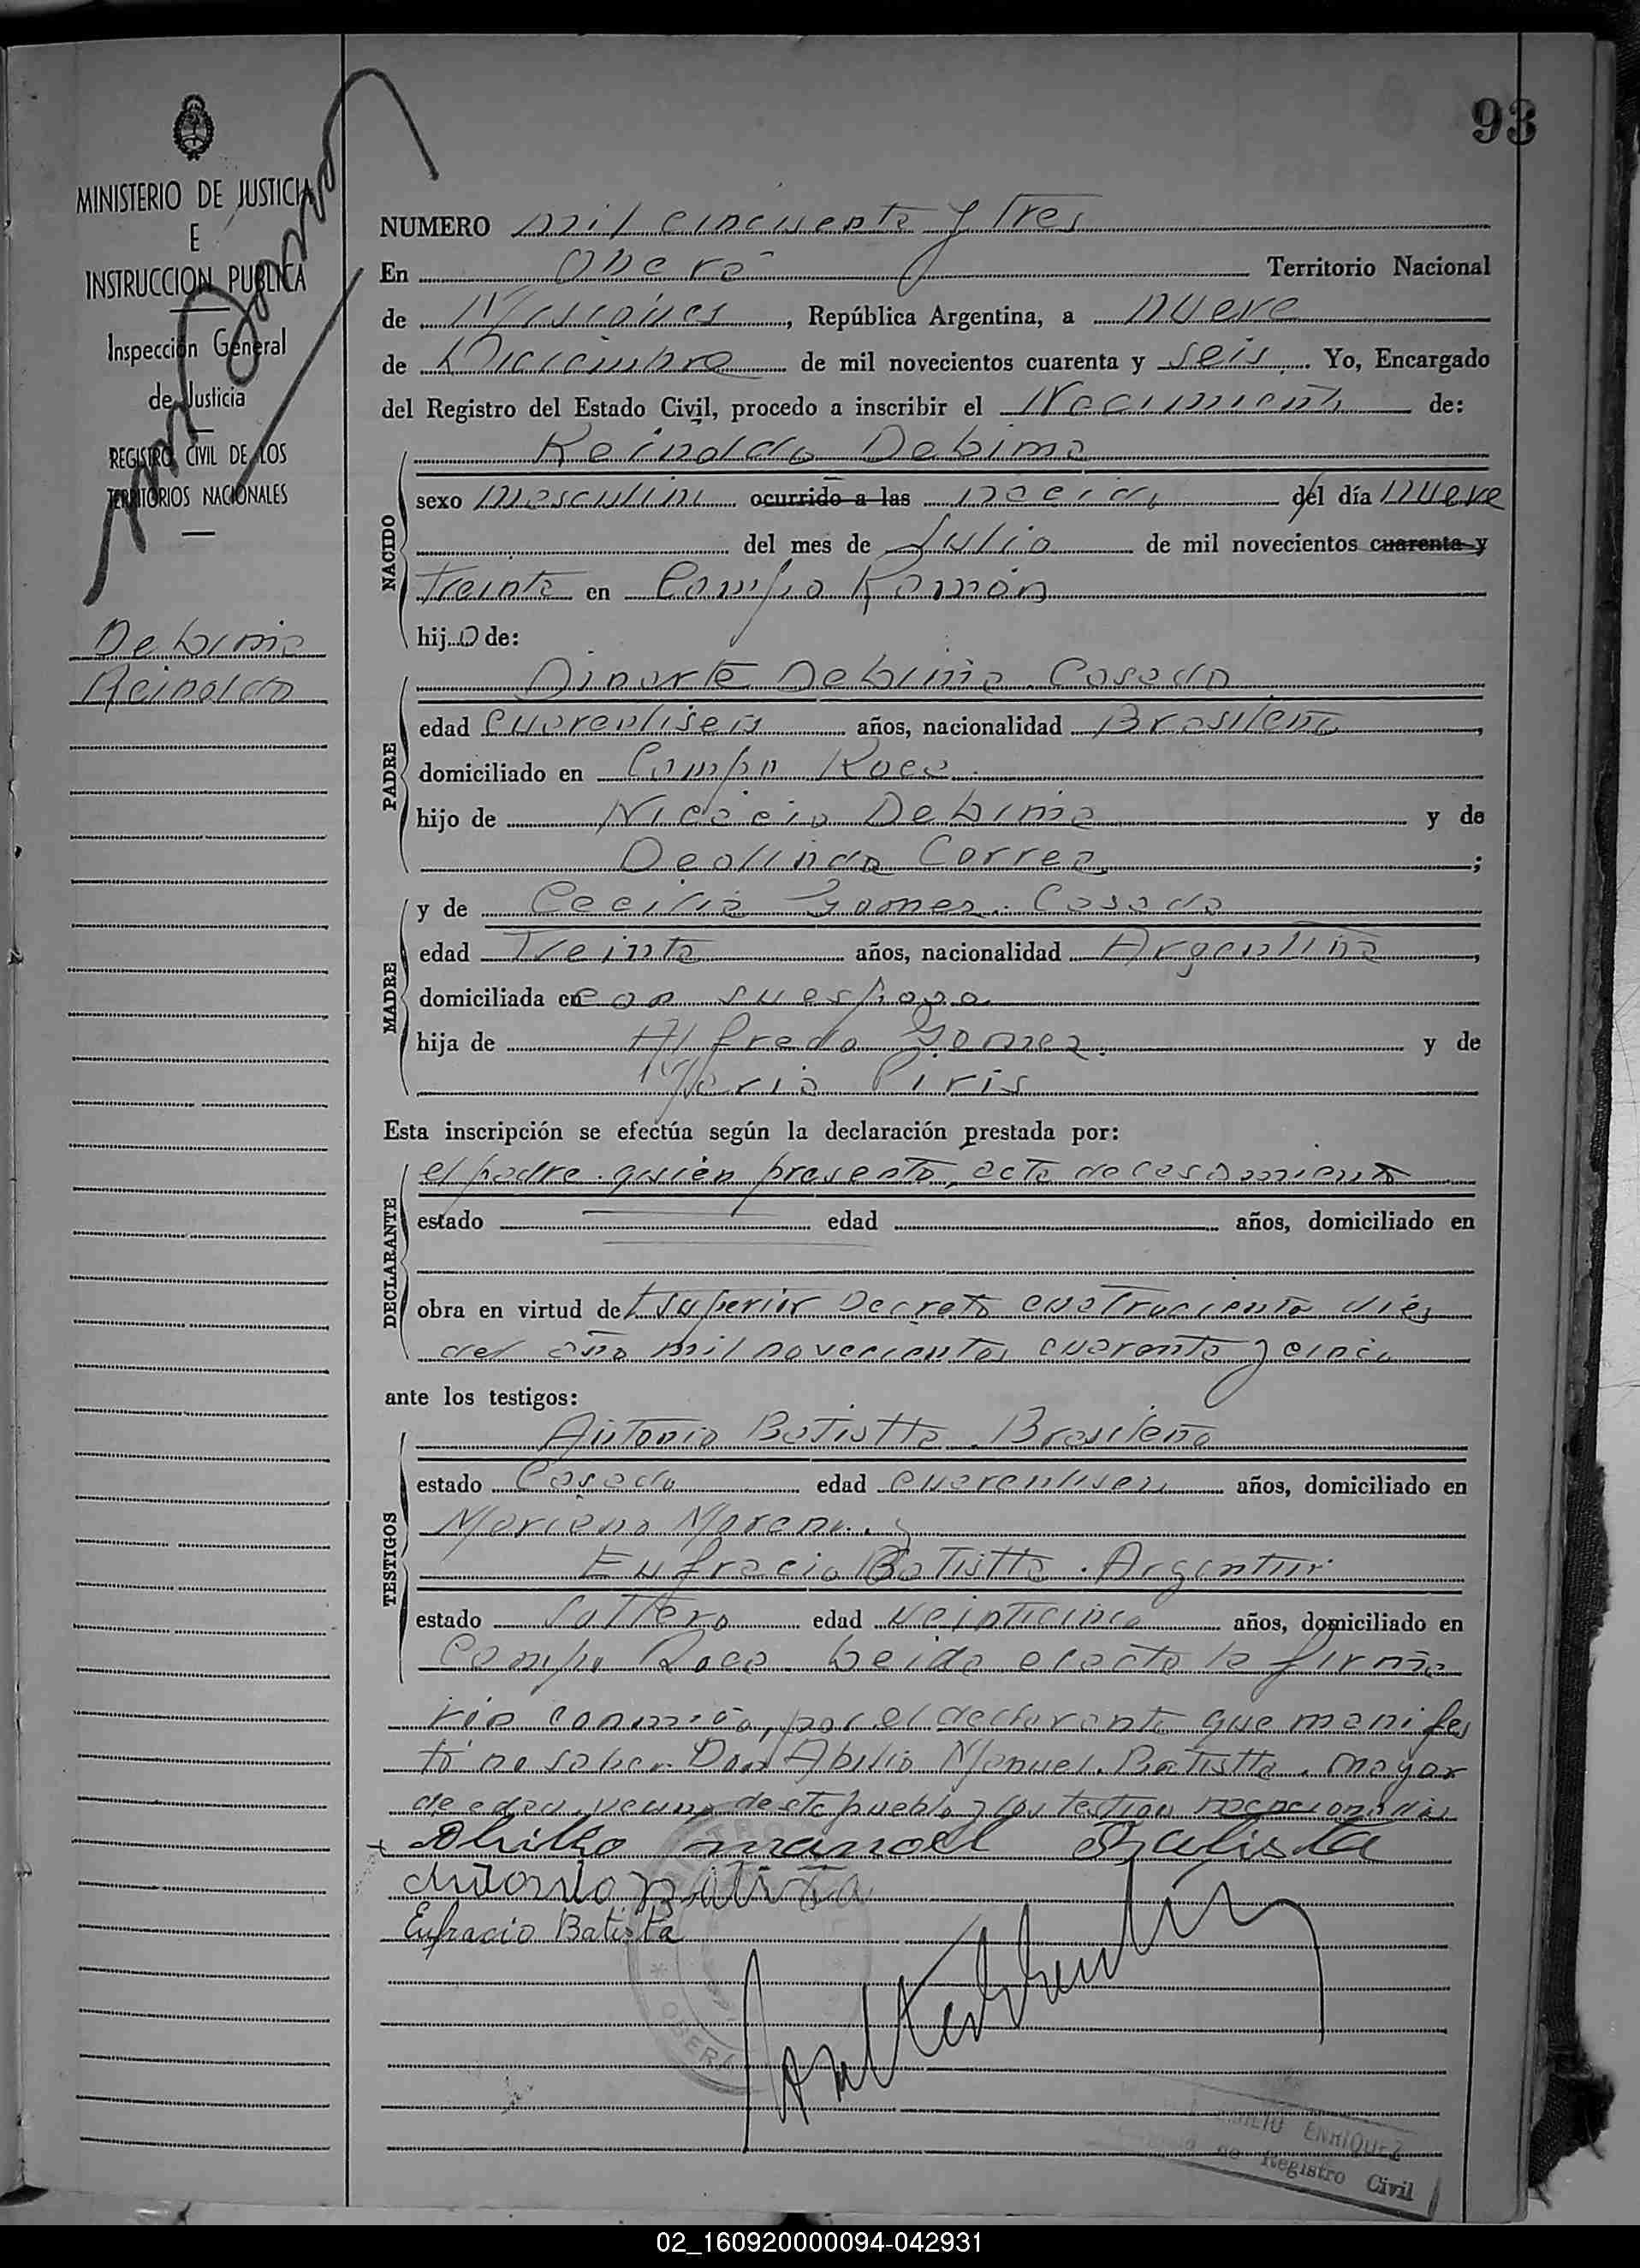 93
MINISTERIO DE JUSTICIA
E
INSTRUCCION PUBLICA
Inspección General
de Justicia
REGISTRO CIVIL DE LOS
TERRITORIOS NACIONALES
Debima
Reinaldo
NUMERO mil cincuenta y tres
En Oberá Territorio Nacional
de Misiones, República Argentina, a nueve
de Diciembre de mil novecientos cuarenta y seis. Yo, Encargado
del Registro del Estado Civil, procedo a inscribir el Nacimiento de:
NACIDO
Reinaldo Debima
sexo masculino ocurrido a las nacido del día nueve
del mes de Julio de mil novecientos cuarenta y
treinta en Campo Ramón
hijo de:
PADRE
Dinarte Debima. Casado
edad cuarentiseis años, nacionalidad Brasileña
domiciliado en Campo Roca.
hijo de Nicacio Debima y de
Deolinda Correa ;
MADRE
y de Cecilia Gomez. Casada
edad Treinta años, nacionalidad Argentina,
domiciliada en con su esposo
hija de Alfredo Gomez. y de
Maria Piris
Esta inscripción se efectúa según la declaración prestada por:
DECLARANTE
el padre. quien presento, acta de casamiento
estado edad años, domiciliado en
obra en virtud del superior Decreto cuatrociento diez
del año mil novecientos cuarenta y cinco
ante los testigos:
TESTIGOS
Antonio Batistta. Brasileño
estado Casado edad cuarentiseis años, domiciliado en
Mariano Moreno. y
Eufracio Batistta. Argentino
estado Soltero edad veinticinco años, domiciliado en
Campo Roca. Leida el acta la firma
ron conmigo, por el declarante que manifes
tó no saber Don Abilio Manuel. Batistta. mayor
de edad vecino de este pueblo y los testigos mencionados
Abilio manoel Batista
Antonio Batista
Eufracio Batista
OBERA
ENRIQUEZ
de Registro Civil
02_160920000094-042931